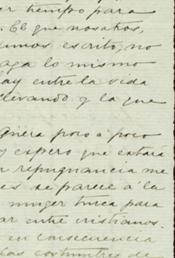 tiempo para
. El que nosotros,
escrito, no
lo mismo
entre la vida
llevando y la que
poco a poco
y espero que estará
repugnancia me
es se parece á la
muger busca para
ar entre cristianos.
en consecuencia
las costumbres de